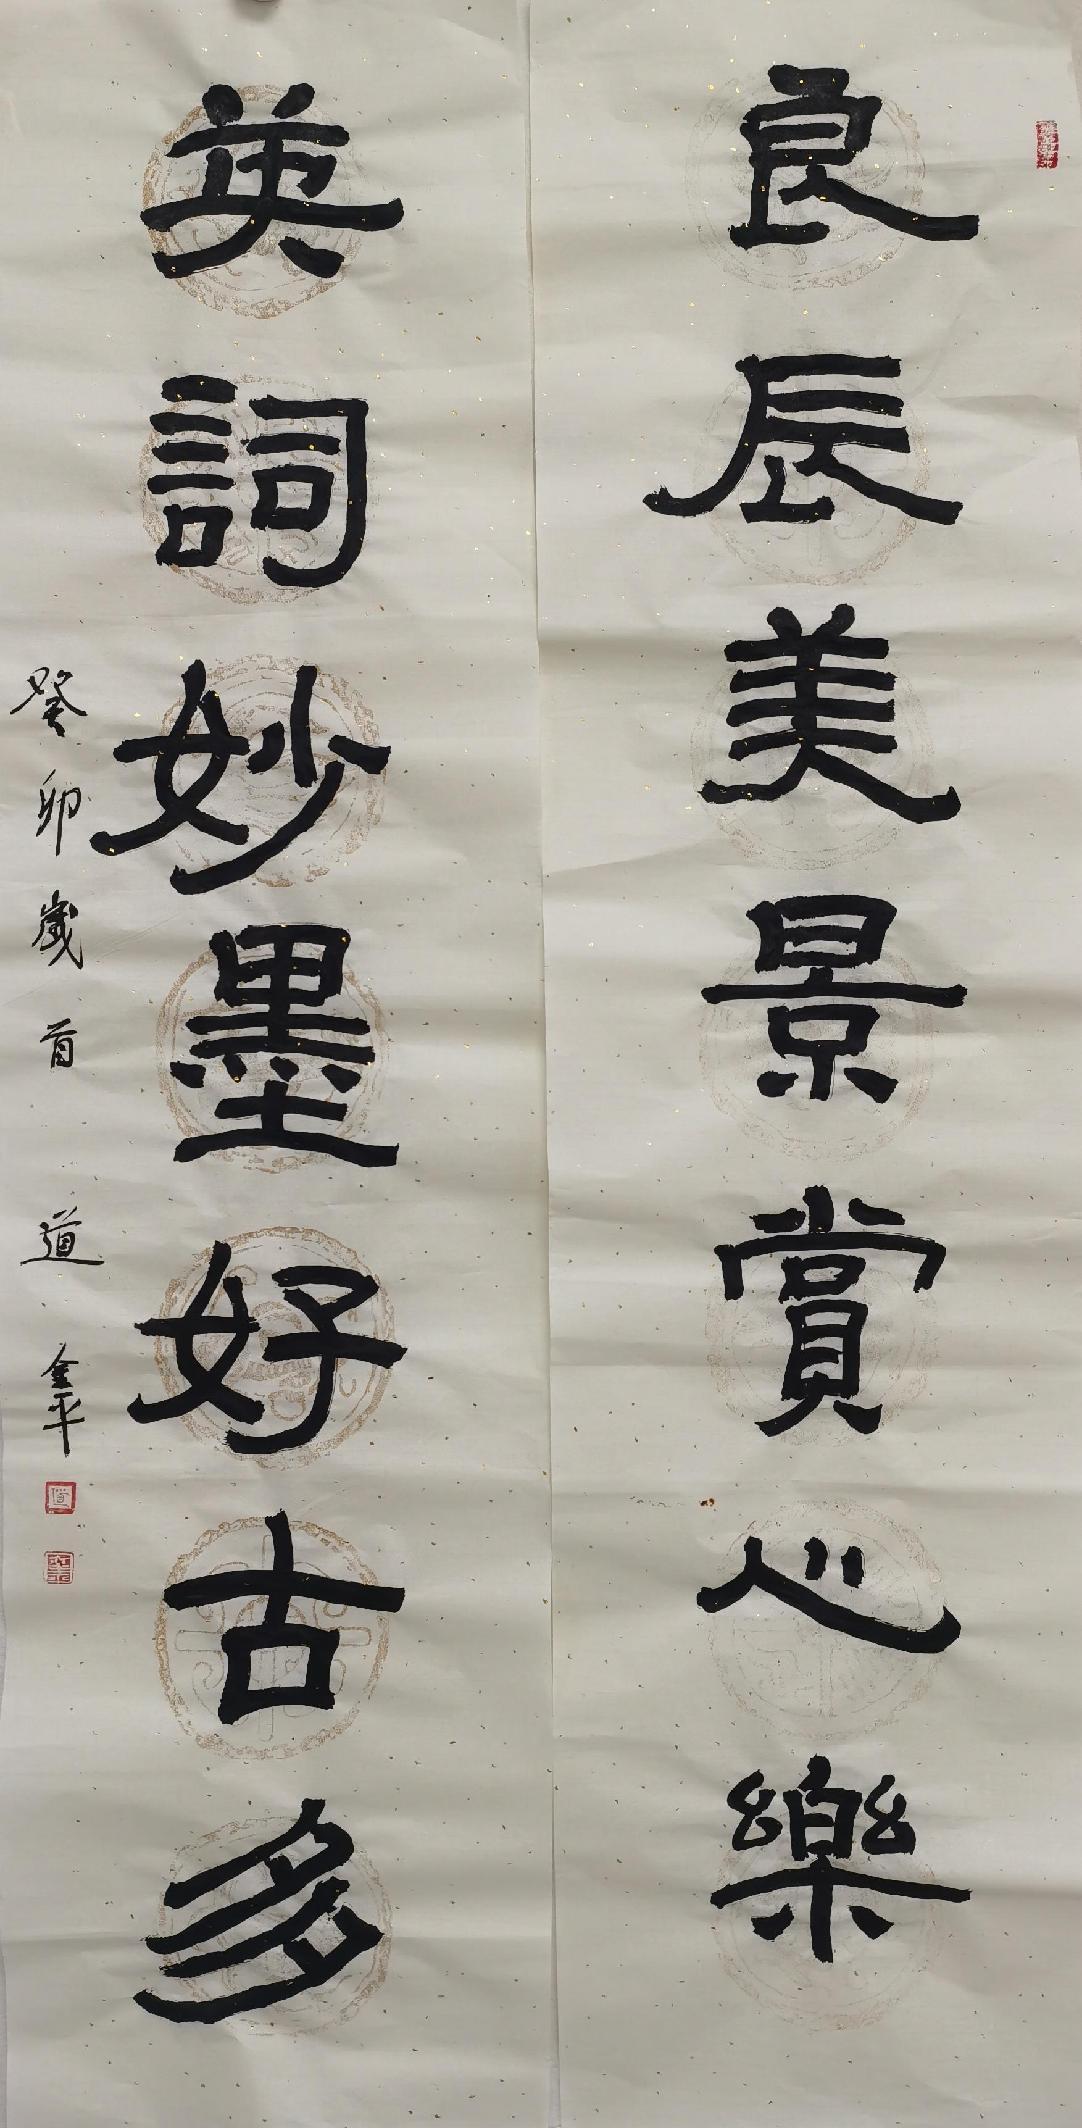 良辰美景賞心樂
英詞妙墨好古多
癸卯歲首 道金平